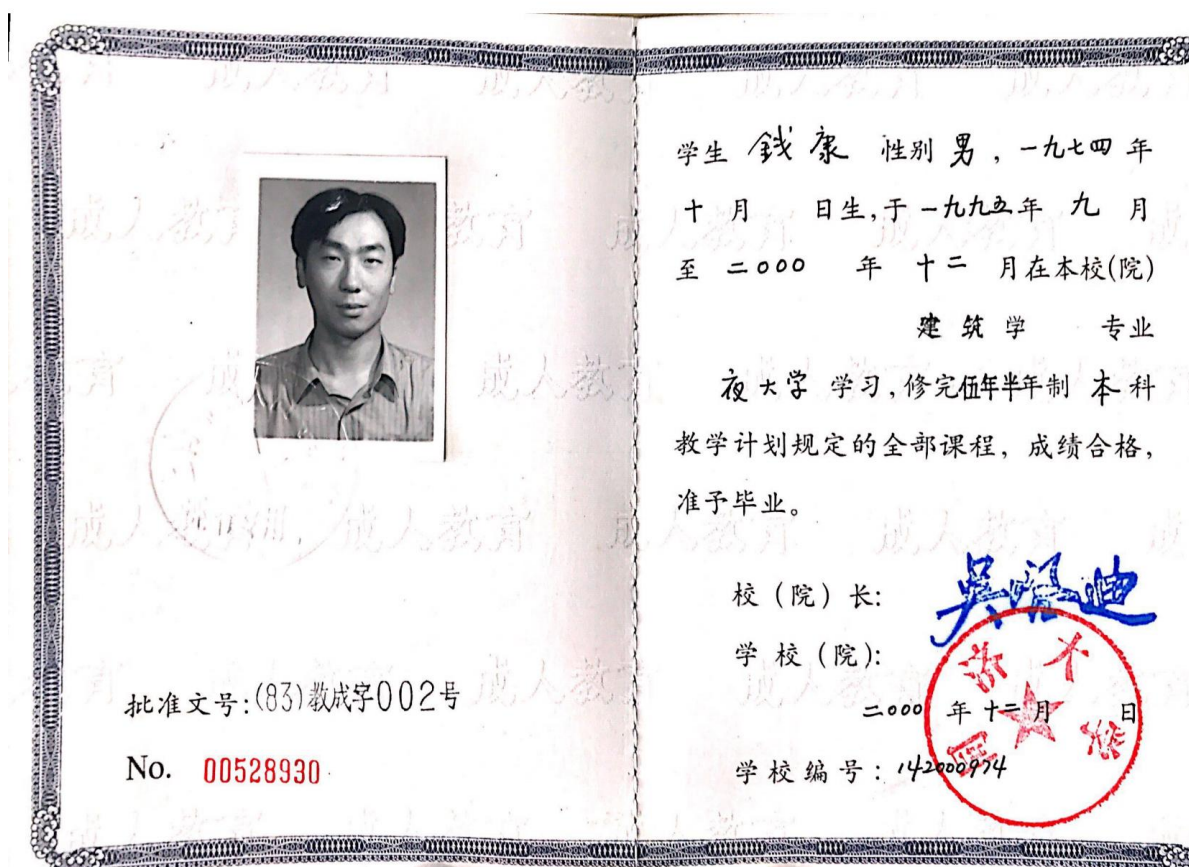 批准文号:(83)教成字002号
No. 00528930
学生 錢康 性别 男，一九七四年
十月 日生,于一九九五年 九 月
至 二000 年 十二 月在本校(院)
建筑学 专业
夜大学 学习,修完伍年半年制 本科
教学计划规定的全部课程，成绩合格，
准予毕业。
校（院）长: 吴启迪
学校(院):
同济大学
二000 年十二月 日
学校编号: 142000974
成人教育